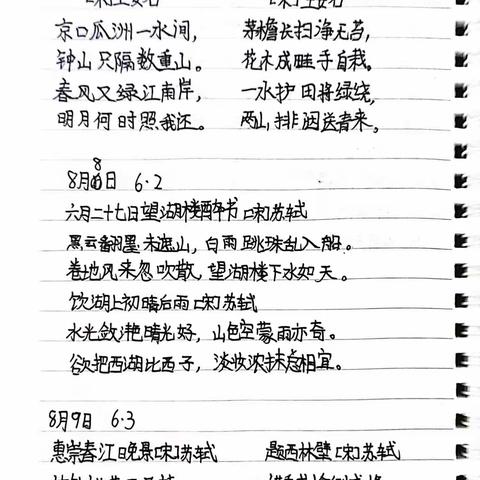 [宋]王安石 [宋]王安石
京口瓜洲一水间， 茅檐长扫净无苔，
钟山只隔数重山。 花木成畦手自栽。
春风又绿江南岸， 一水护田将绿绕，
明月何时照我还。 两山排闼送青来。
8月8日 6·2
六月二十七日望湖楼醉书 [宋]苏轼
黑云翻墨未遮山，白雨跳珠乱入船。
卷地风来忽吹散，望湖楼下水如天。
饮湖上初晴后雨 [宋]苏轼
水光潋滟晴光好，山色空蒙雨亦奇。
欲把西湖比西子，淡妆浓抹总相宜。
8月9日 6·3
惠崇春江晚景[宋]苏轼 题西林壁[宋]苏轼